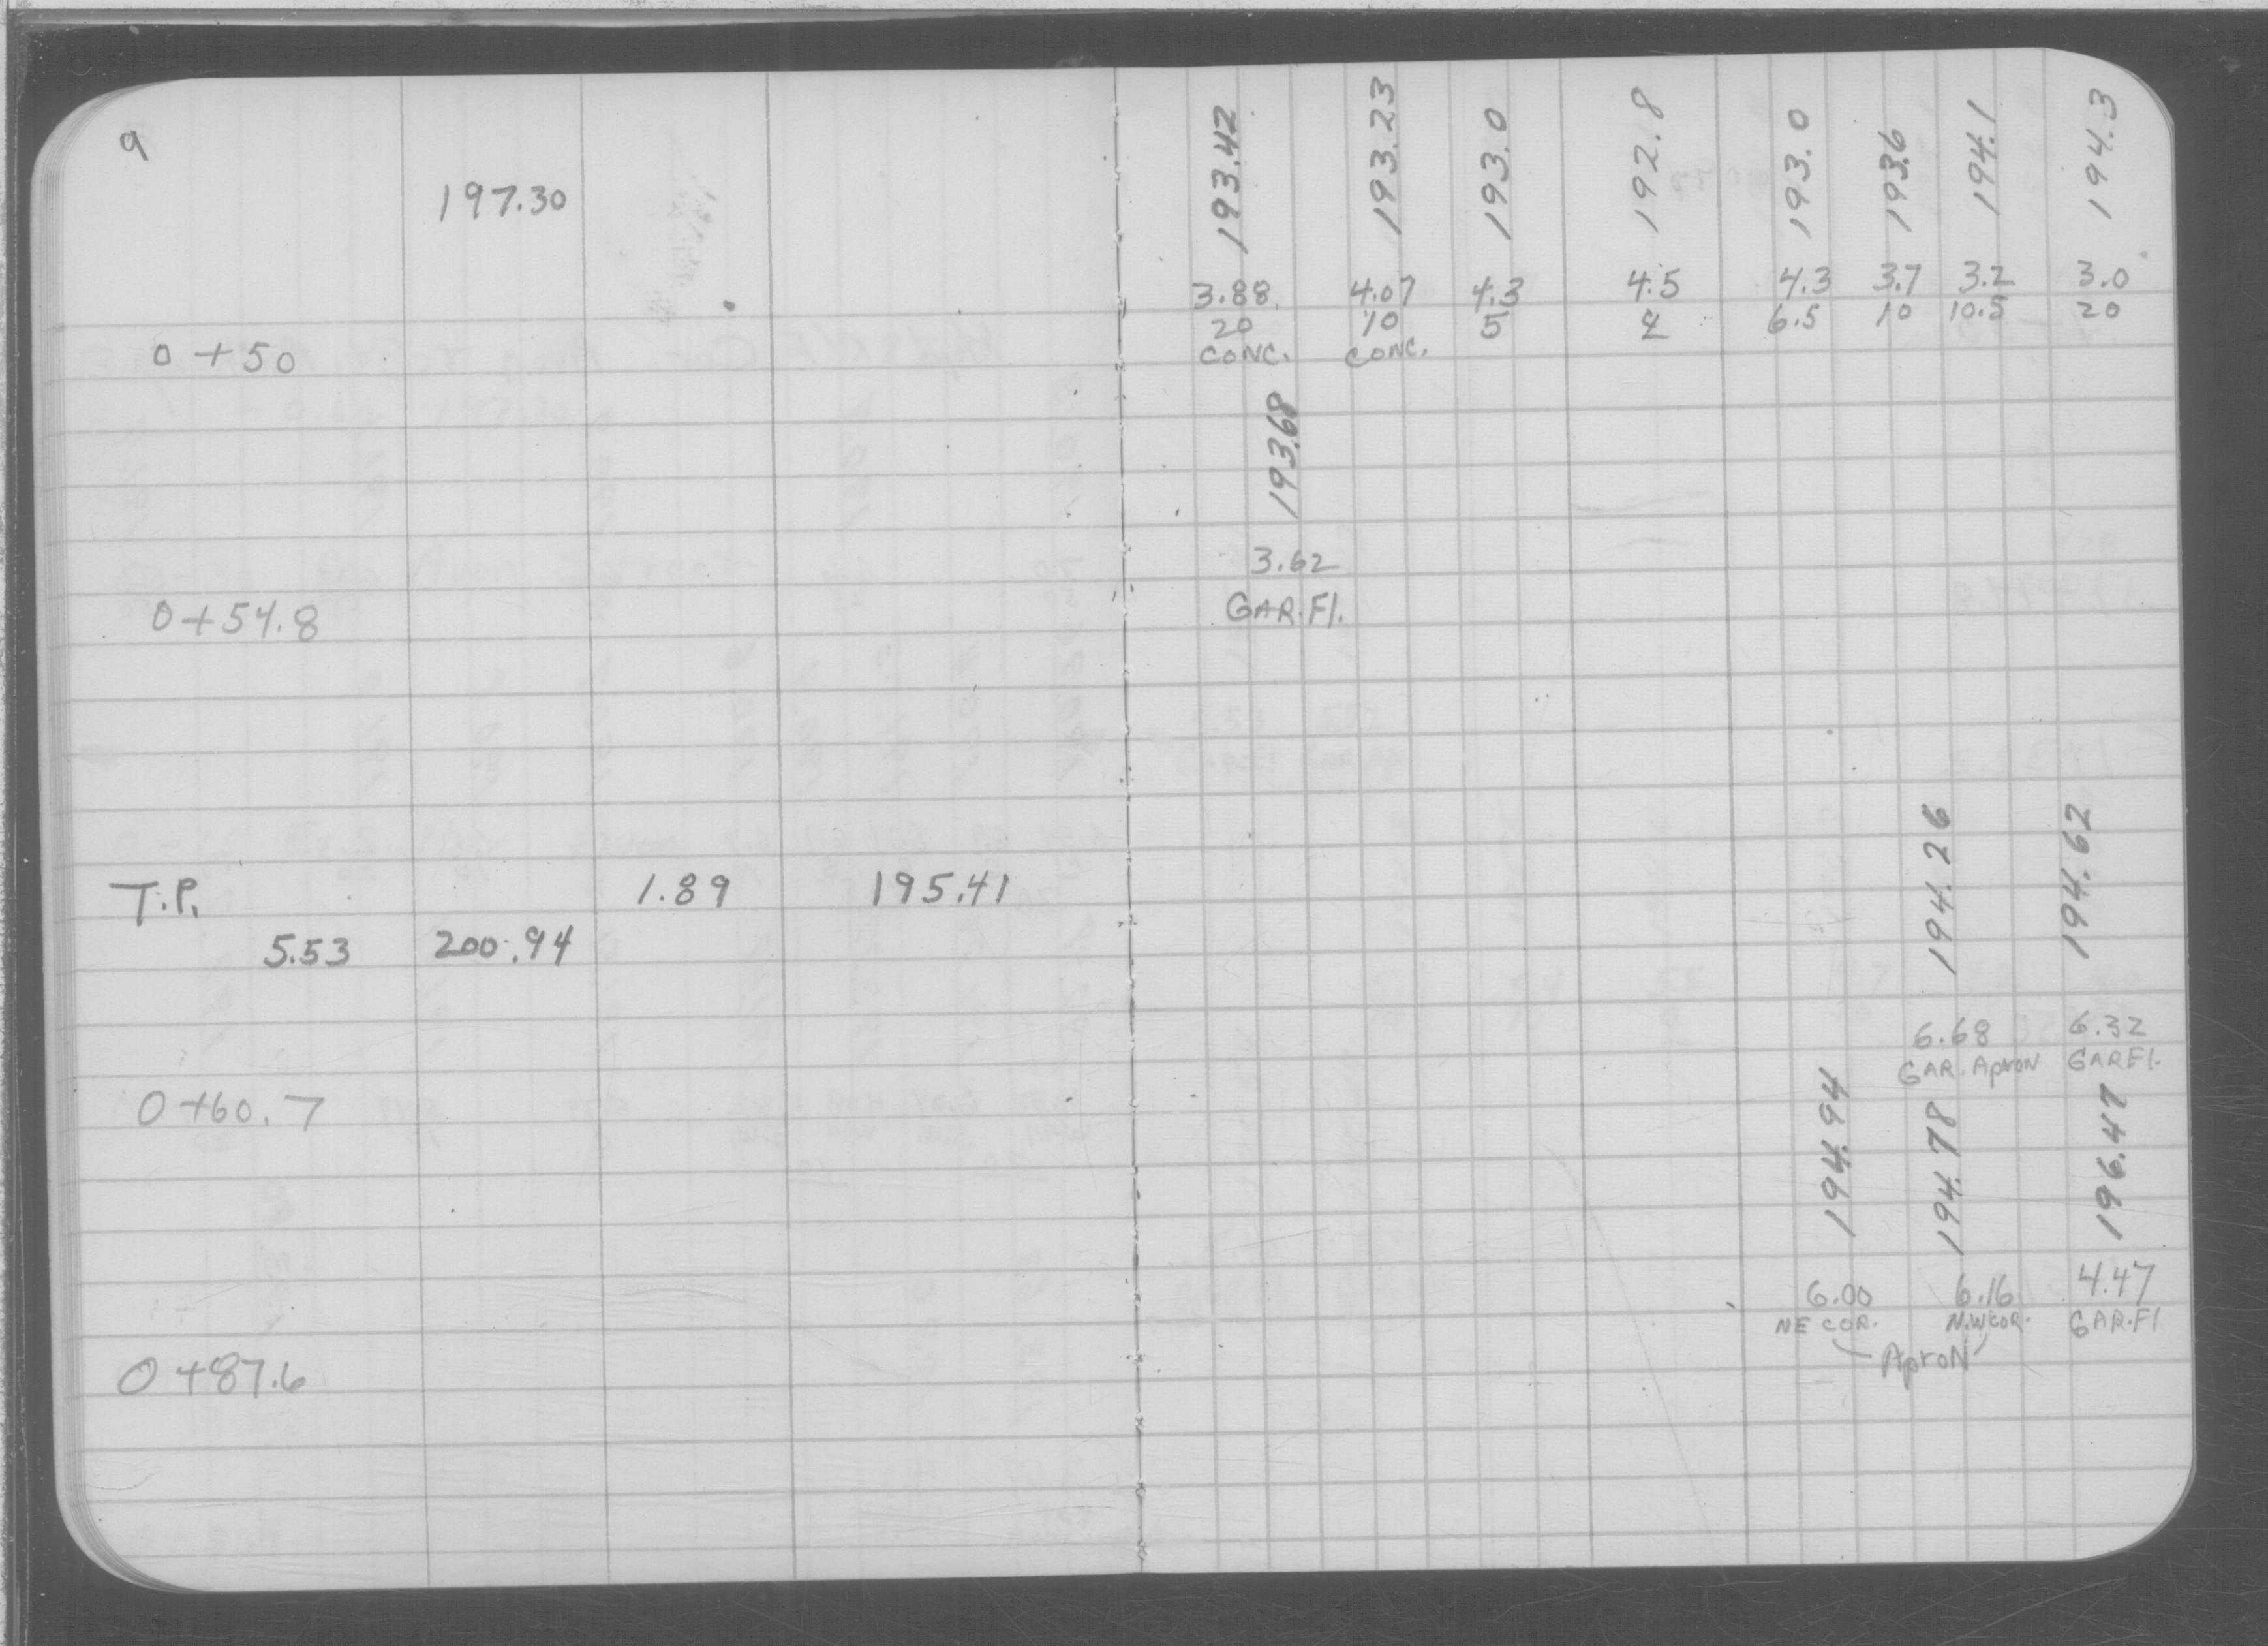 9
197.30
193.42 193.23 193.0 192.8 193.0 193.6 194.1 194.3
3.88 4.07 4.3 4.5 4.3 3.7 3.2 3.0
20 10 5 £ 6.5 10 10.5 20
0+50 CONC. CONC.
193.68
3.62
0+54.8 GAR.Fl.
194.26 194.62
T.P. 1.89 195.41
5.53 200.94
6.68 6.32
GAR. Apron GAR Fl.
0+60.7
194.94 194.78 196.47
6.00 6.16 4.47
NE COR. N.W COR. GAR.Fl
0+87.6 Apron